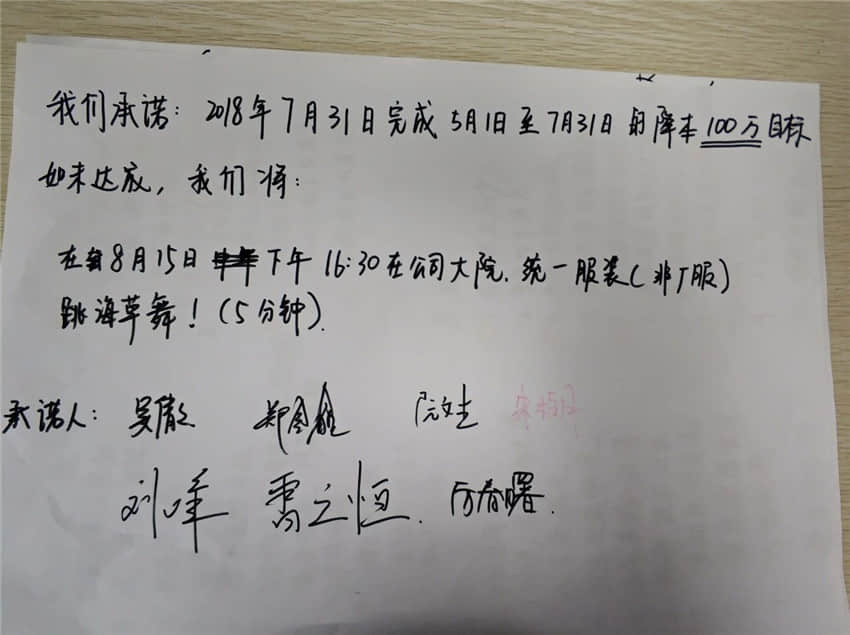 我们承诺：2018年7月31日完成5月1日至7月31日的降本100万目标
如未达成，我们将：
在8月15日下午16:30在公司大院.统一服装(非T服)
跳海草舞！(5分钟).
承诺人：
刘峰